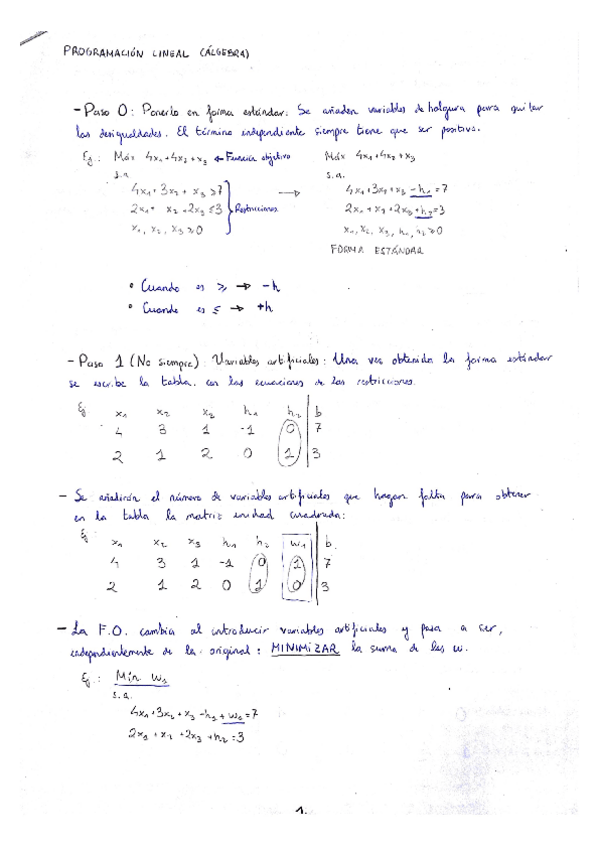 PROGRAMACIÓN LINEAL (ÁLGEBRA)
- Paso 0: Ponerlo en forma estándar: Se añaden variables de holgura para quitar
las desigualdades. El término independiente siempre tiene que ser positivo.
Eg: Máx 4x₁+4x₂+x₃ ← Función objetivo Máx 4x₁+4x₂+x₃
s.a. s.a.
4x₁+3x₂+x₃ ≥7 → 4x₁+3x₂+x₃-h₁=7
2x₁+x₂+2x₃≤3 Restricciones 2x₁+x₂+2x₃+h₂=3
x₁, x₂, x₃ ≥0 x₁, x₂, x₃, h₁, h₂ ≥0
FORMA ESTÁNDAR
• Cuando es ≥ → -h
• Cuando es ≤ → +h
- Paso 1 (No siempre): Variables artificiales: Una vez obtenida la forma estándar
se escribe la tabla con las ecuaciones de las restricciones.
Eg x₁ x₂ x₃ h₁ h₂ b
4 3 1 -1 0 7
2 1 2 0 1 3
- Se añadirán el número de variables artificiales que hagan falta para obtener
en la tabla la matriz unidad cuadrada:
Eg x₁ x₂ x₃ h₁ h₂ w₁ b
4 3 1 -1 0 1 7
2 1 2 0 1 0 3
- La F.O. cambia al introducir variables artificiales y pasa a ser,
independientemente de la original: MINIMIZAR la suma de las w.
Eg: Min w₁
s.a.
4x₁+3x₂+x₃-h₁+w₁=7
2x₁+x₂+2x₃+h₂=3
1.